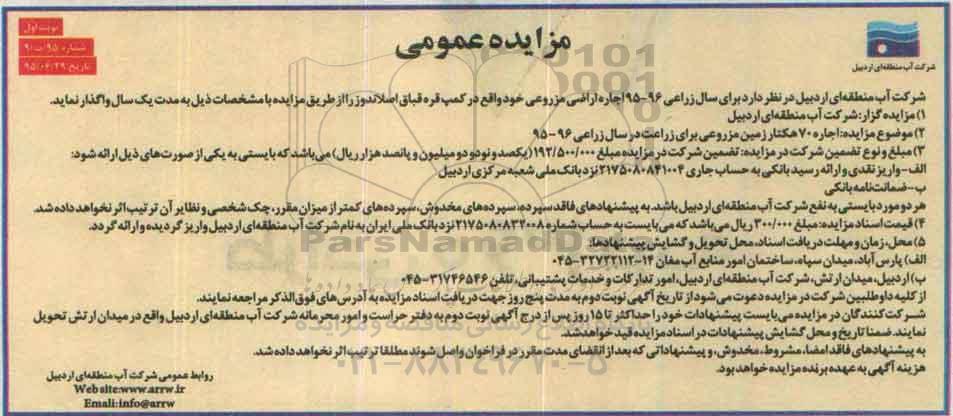 نوبت اول
شماره: ۹۵/ت/۹۱
تاریخ: ۹۵/۰۴/۲۹
مزایده عمومی
شرکت آب منطقه‌ای اردبیل
شرکت آب منطقه‌ای اردبیل در نظر دارد برای سال زراعی ۹۶-۹۵ اجاره اراضی مزروعی خود واقع در کمپ قره قباق اصلاندوز را از طریق مزایده با مشخصات ذیل به مدت یک سال واگذار نماید.
۱) مزایده گزار: شرکت آب منطقه‌ای اردبیل
۲) موضوع مزایده: اجاره ۷۰ هکتار زمین مزروعی برای زراعت در سال زراعی ۹۶-۹۵
۳) مبلغ و نوع تضمین شرکت در مزایده: تضمین شرکت در مزایده مبلغ ۱۹۲/۵۰۰/۰۰۰ (یکصد و نود و دو میلیون و پانصد هزار ریال) می‌باشد که بایستی به یکی از صورت‌های ذیل ارائه شود:
الف- واریز نقدی و ارائه رسید بانکی به حساب جاری ۲۱۷۵۰۸۰۸۴۱۰۰۴ نزد بانک ملی شعبه مرکزی اردبیل
ب- ضمانت‌نامه بانکی
هر دو مورد بایستی به نفع شرکت آب منطقه‌ای اردبیل باشد. به پیشنهادهای فاقد سپرده، سپرده‌های مخدوش، سپرده‌های کمتر از میزان مقرر، چک شخصی و نظایر آن ترتیب اثر نخواهد داده شد.
۴) قیمت اسناد مزایده: مبلغ ۳۰۰/۰۰۰ ریال می‌باشد که می‌بایست به حساب شماره ۲۱۷۵۰۸۰۸۳۲۰۰۸ نزد بانک ملی ایران به نام شرکت آب منطقه‌ای اردبیل واریز گردیده و ارائه گردد.
۵) محل، زمان و مهلت دریافت اسناد، محل تحویل و گشایش پیشنهادها:
الف) پارس‌آباد، میدان سپاه، ساختمان امور منابع آب مغان ۱۴-۳۲۷۲۲۱۱۲-۰۴۵
ب) اردبیل، میدان ارتش، شرکت آب منطقه‌ای اردبیل، امور تدارکات و خدمات پشتیبانی، تلفن ۳۱۷۴۶۵۴۶-۰۴۵
از کلیه داوطلبین شرکت در مزایده دعوت می‌شود از تاریخ آگهی نوبت دوم به مدت پنج روز جهت دریافت اسناد مزایده به آدرس‌های فوق‌الذکر مراجعه نمایند.
شرکت کنندگان در مزایده می‌بایست پیشنهادات خود را حداکثر تا ۱۵ روز پس از درج آگهی نوبت دوم به دفتر حراست و امور محرمانه شرکت آب منطقه‌ای اردبیل واقع در میدان ارتش تحویل
نمایند. ضمنا تاریخ و محل گشایش پیشنهادات در اسناد مزایده قید خواهد شد.
به پیشنهادهای فاقد امضا، مشروط، مخدوش، و پیشنهاداتی که بعد از انقضای مدت مقرر در فراخوان واصل شوند مطلقا ترتیب اثر نخواهد داده شد.
هزینه آگهی به عهده برنده مزایده خواهد بود.
روابط عمومی شرکت آب منطقه‌ای اردبیل
Web site:www.arrw.ir
Emali:info@arrw
ParsNamadData
۰۲۱-۸۸۳۴۹۶۷۰-۵